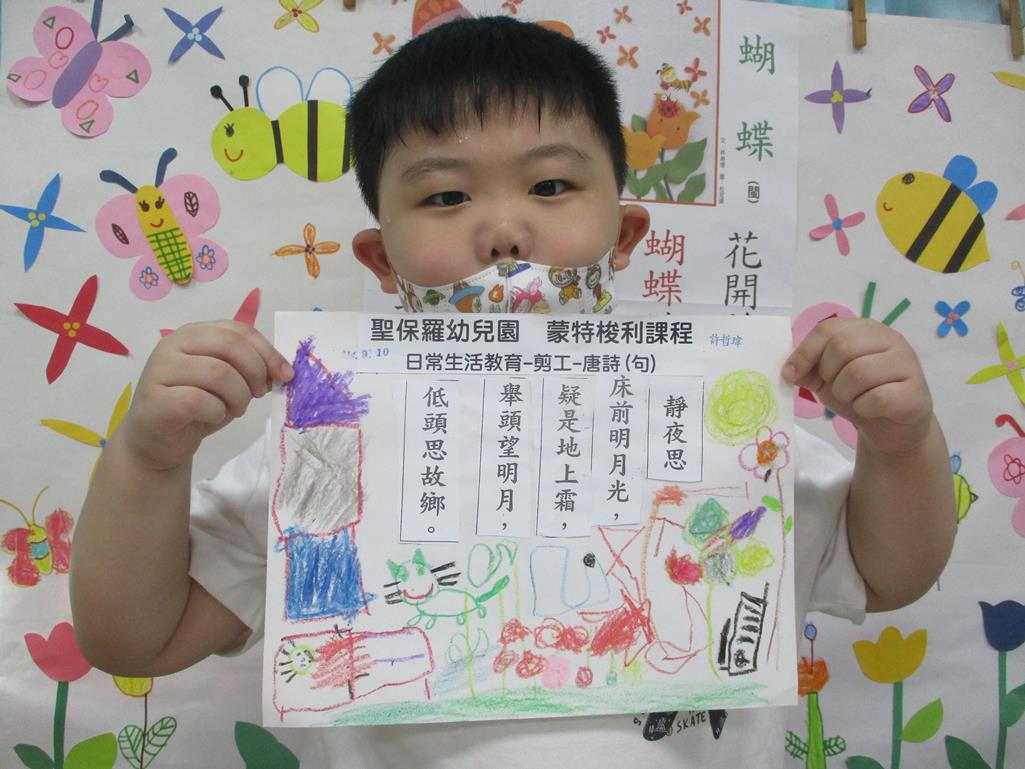 聖保羅幼兒園 蒙特梭利課程
許哲瑋
日常生活教育-剪工-唐詩(句)
靜夜思
床前明月光,
疑是地上霜,
舉頭望明月,
低頭思故鄉。
蝴蝶(閩)
蝴蝶
花開
SKATE